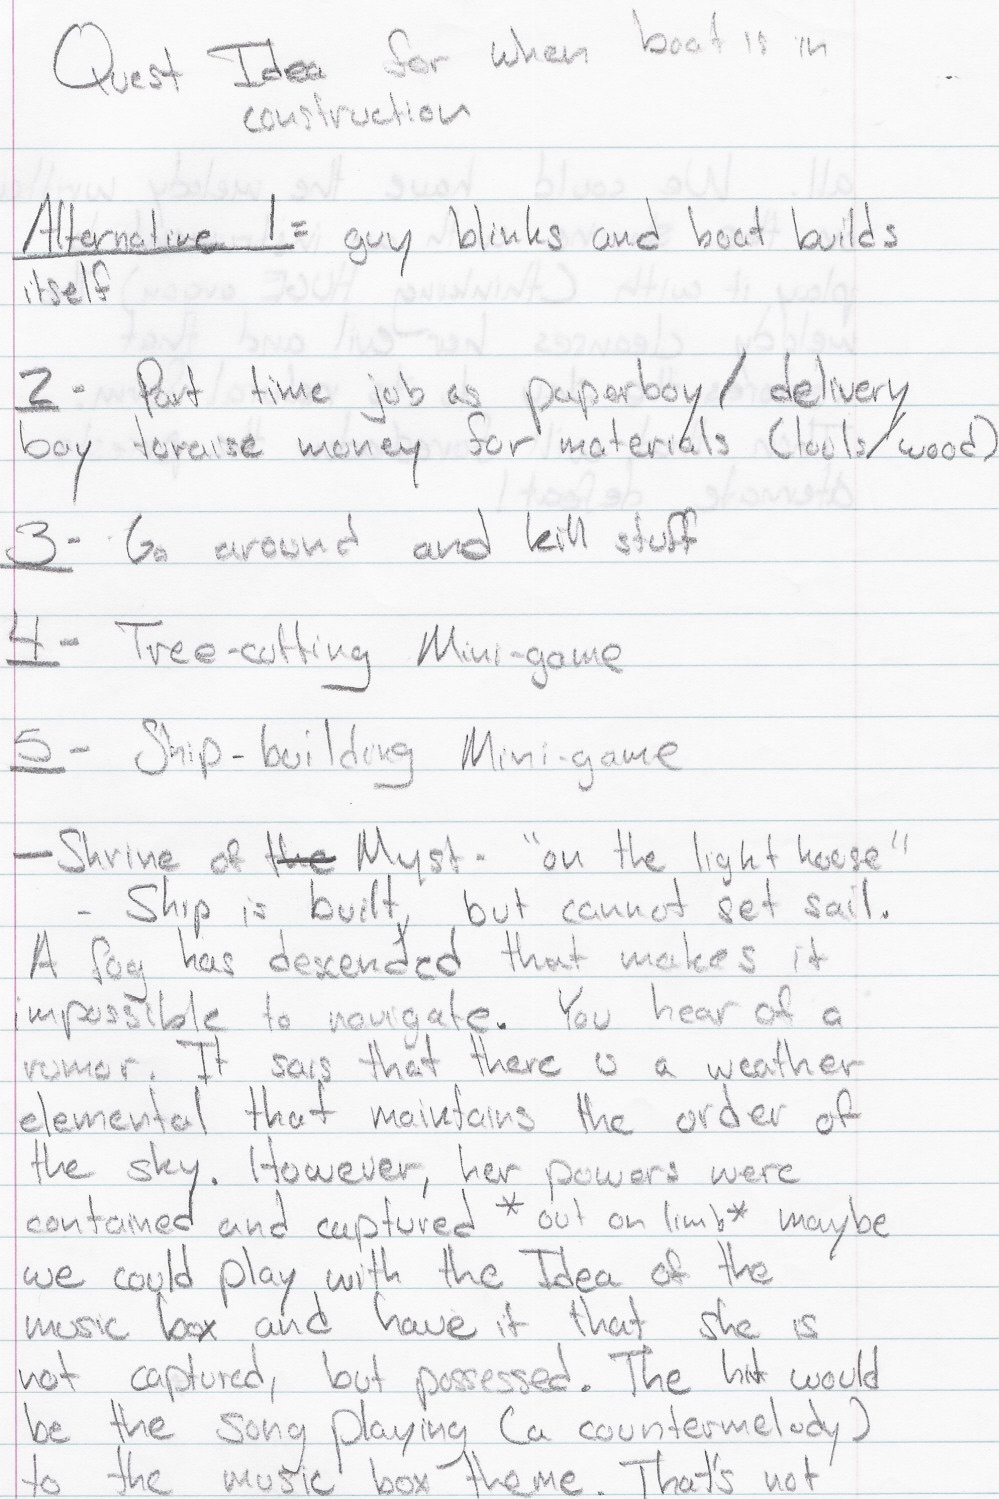 Quest Idea for when boat is in
construction
Alternative 1= guy blinks and boat builds
itself
2- Part time job as paperboy/delivery
boy toraise money for materials (tools/wood)
3- Go around and kill stuff
4- Tree-cutting Mini-game
5- Ship-building Mini-game
- Shrine of the Myst- "on the light house"
- Ship is built, but cannot set sail.
A fog has descended that makes it
impossible to navigate. You hear of a
rumor. It sais that there is a weather
elemental that maintains the order of
the sky. However, her powers were
contained and captured *out on limb* maybe
we could play with the Idea of the
music box and have it that she is
not captured, but possessed. The hit would
be the song playing (a countermelody)
to the music box theme. That's not
all. We could have the melody written
play it with (thinking HUGE organ)
melody cleanses her evil and that
alternate defeat!